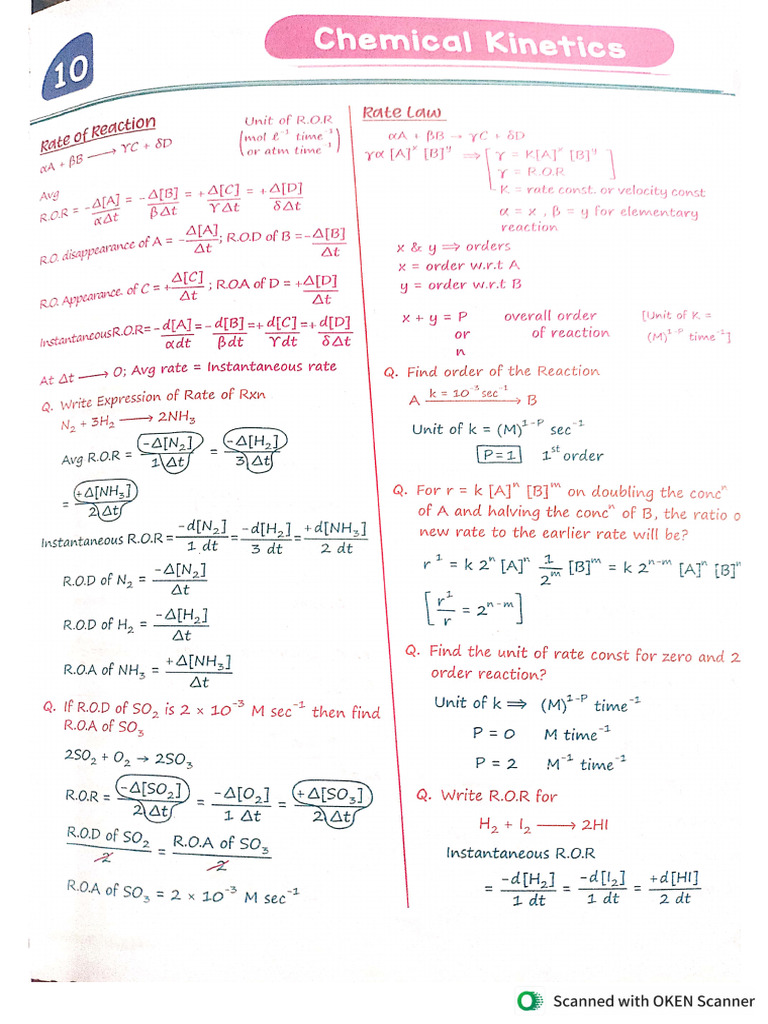 10
Chemical Kinetics
Rate of Reaction
αA + βB ⟶ γC + δD
Unit of R.O.R
(mol ℓ⁻¹ time⁻¹
or atm time⁻¹)
Avg
R.O.R = -Δ[A]/αΔt = -Δ[B]/βΔt = +Δ[C]/γΔt = +Δ[D]/δΔt
R.O. disappearance of A = -Δ[A]/Δt ; R.O.D of B = -Δ[B]/Δt
R.O. Appearance. of C = +Δ[C]/Δt ; R.O.A of D = +Δ[D]/Δt
Instantaneous R.O.R = -d[A]/αdt = -d[B]/βdt = +d[C]/γdt = +d[D]/δΔt
At Δt ⟶ 0; Avg rate = Instantaneous rate
Q. Write Expression of Rate of Rxn
N₂ + 3H₂ ⟶ 2NH₃
Avg R.O.R = -Δ[N₂]/1 Δt = -Δ[H₂]/3 Δt
= +Δ[NH₃]/2 Δt
Instantaneous R.O.R = -d[N₂]/1 dt = -d[H₂]/3 dt = +d[NH₃]/2 dt
R.O.D of N₂ = -Δ[N₂]/Δt
R.O.D of H₂ = -Δ[H₂]/Δt
R.O.A of NH₃ = +Δ[NH₃]/Δt
Q. If R.O.D of SO₂ is 2 × 10⁻³ M sec⁻¹ then find
R.O.A of SO₃
2SO₂ + O₂ → 2SO₃
R.O.R = -Δ[SO₂]/2 Δt = -Δ[O₂]/1 Δt = +Δ[SO₃]/2 Δt
R.O.D of SO₂/2 = R.O.A of SO₃/2
R.O.A of SO₃ = 2 × 10⁻³ M sec⁻¹
Rate Law
αA + βB → γC + δD
γα [A]ˣ [B]ʸ ⟹ [γ = K[A]ˣ [B]ʸ
γ = R.O.R]
K = rate const. or velocity const
α = x , β = y for elementary
reaction
x & y ⟹ orders
x = order w.r.t A
y = order w.r.t B
x + y = P overall order [Unit of K =
or of reaction (M)¹⁻ᴾ time⁻¹]
n
Q. Find order of the Reaction
A k = 10⁻³ sec⁻¹ ⟶ B
Unit of k = (M)¹⁻ᴾ sec⁻¹
P = 1 1ˢᵗ order
Q. For r = k [A]ⁿ [B]ᵐ on doubling the concⁿ
of A and halving the concⁿ of B, the ratio o
new rate to the earlier rate will be?
r¹ = k 2ⁿ [A]ⁿ 1/2ᵐ [B]ᵐ = k 2ⁿ⁻ᵐ [A]ⁿ [B]ⁿ
[r¹/r = 2ⁿ⁻ᵐ]
Q. Find the unit of rate const for zero and 2
order reaction?
Unit of k ⟹ (M)¹⁻ᴾ time⁻¹
P = 0 M time⁻¹
P = 2 M⁻¹ time⁻¹
Q. Write R.O.R for
H₂ + I₂ ⟶ 2HI
Instantaneous R.O.R
= -d[H₂]/1 dt = -d[I₂]/1 dt = +d[HI]/2 dt
Scanned with OKEN Scanner